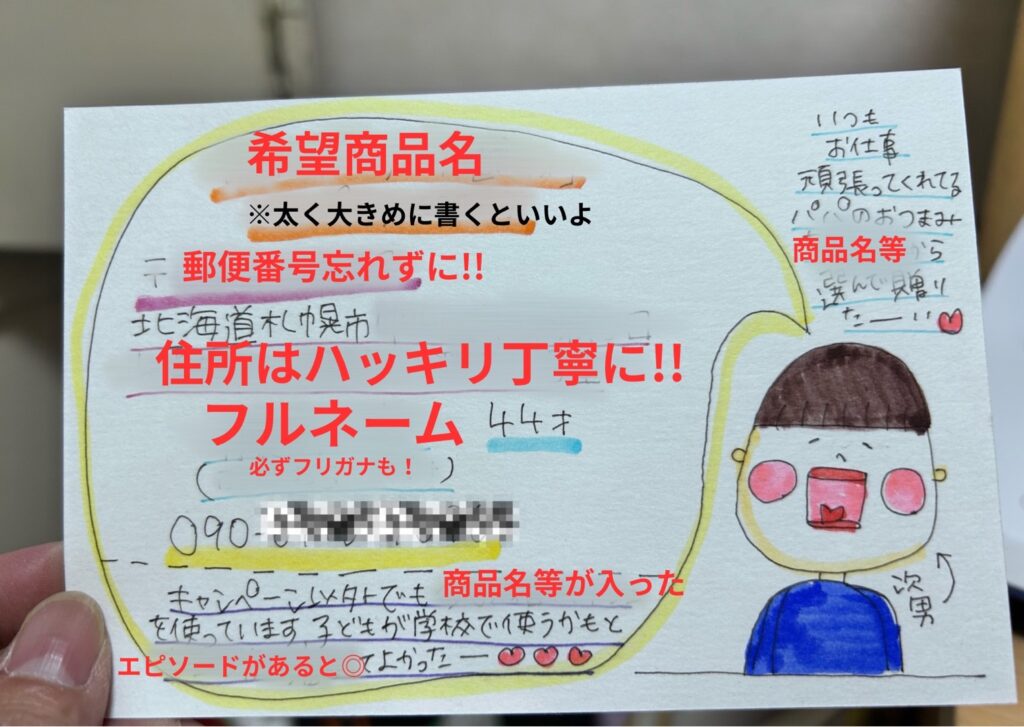 希望商品名
※太く大きめに書くといいよ
〒 郵便番号忘れずに!!
北海道札幌市
住所はハッキリ丁寧に!!
フルネーム 44才
(必ずフリガナも!)
090-
キャンペーン以外でも 商品名等が入った
を使っています 子どもが学校で使うかもと
エピソードがあると◎ てよかったー
いつも
お仕事
頑張ってくれてる
パパのおつまみ
商品名等 から
選んで贈り
たーい
次男